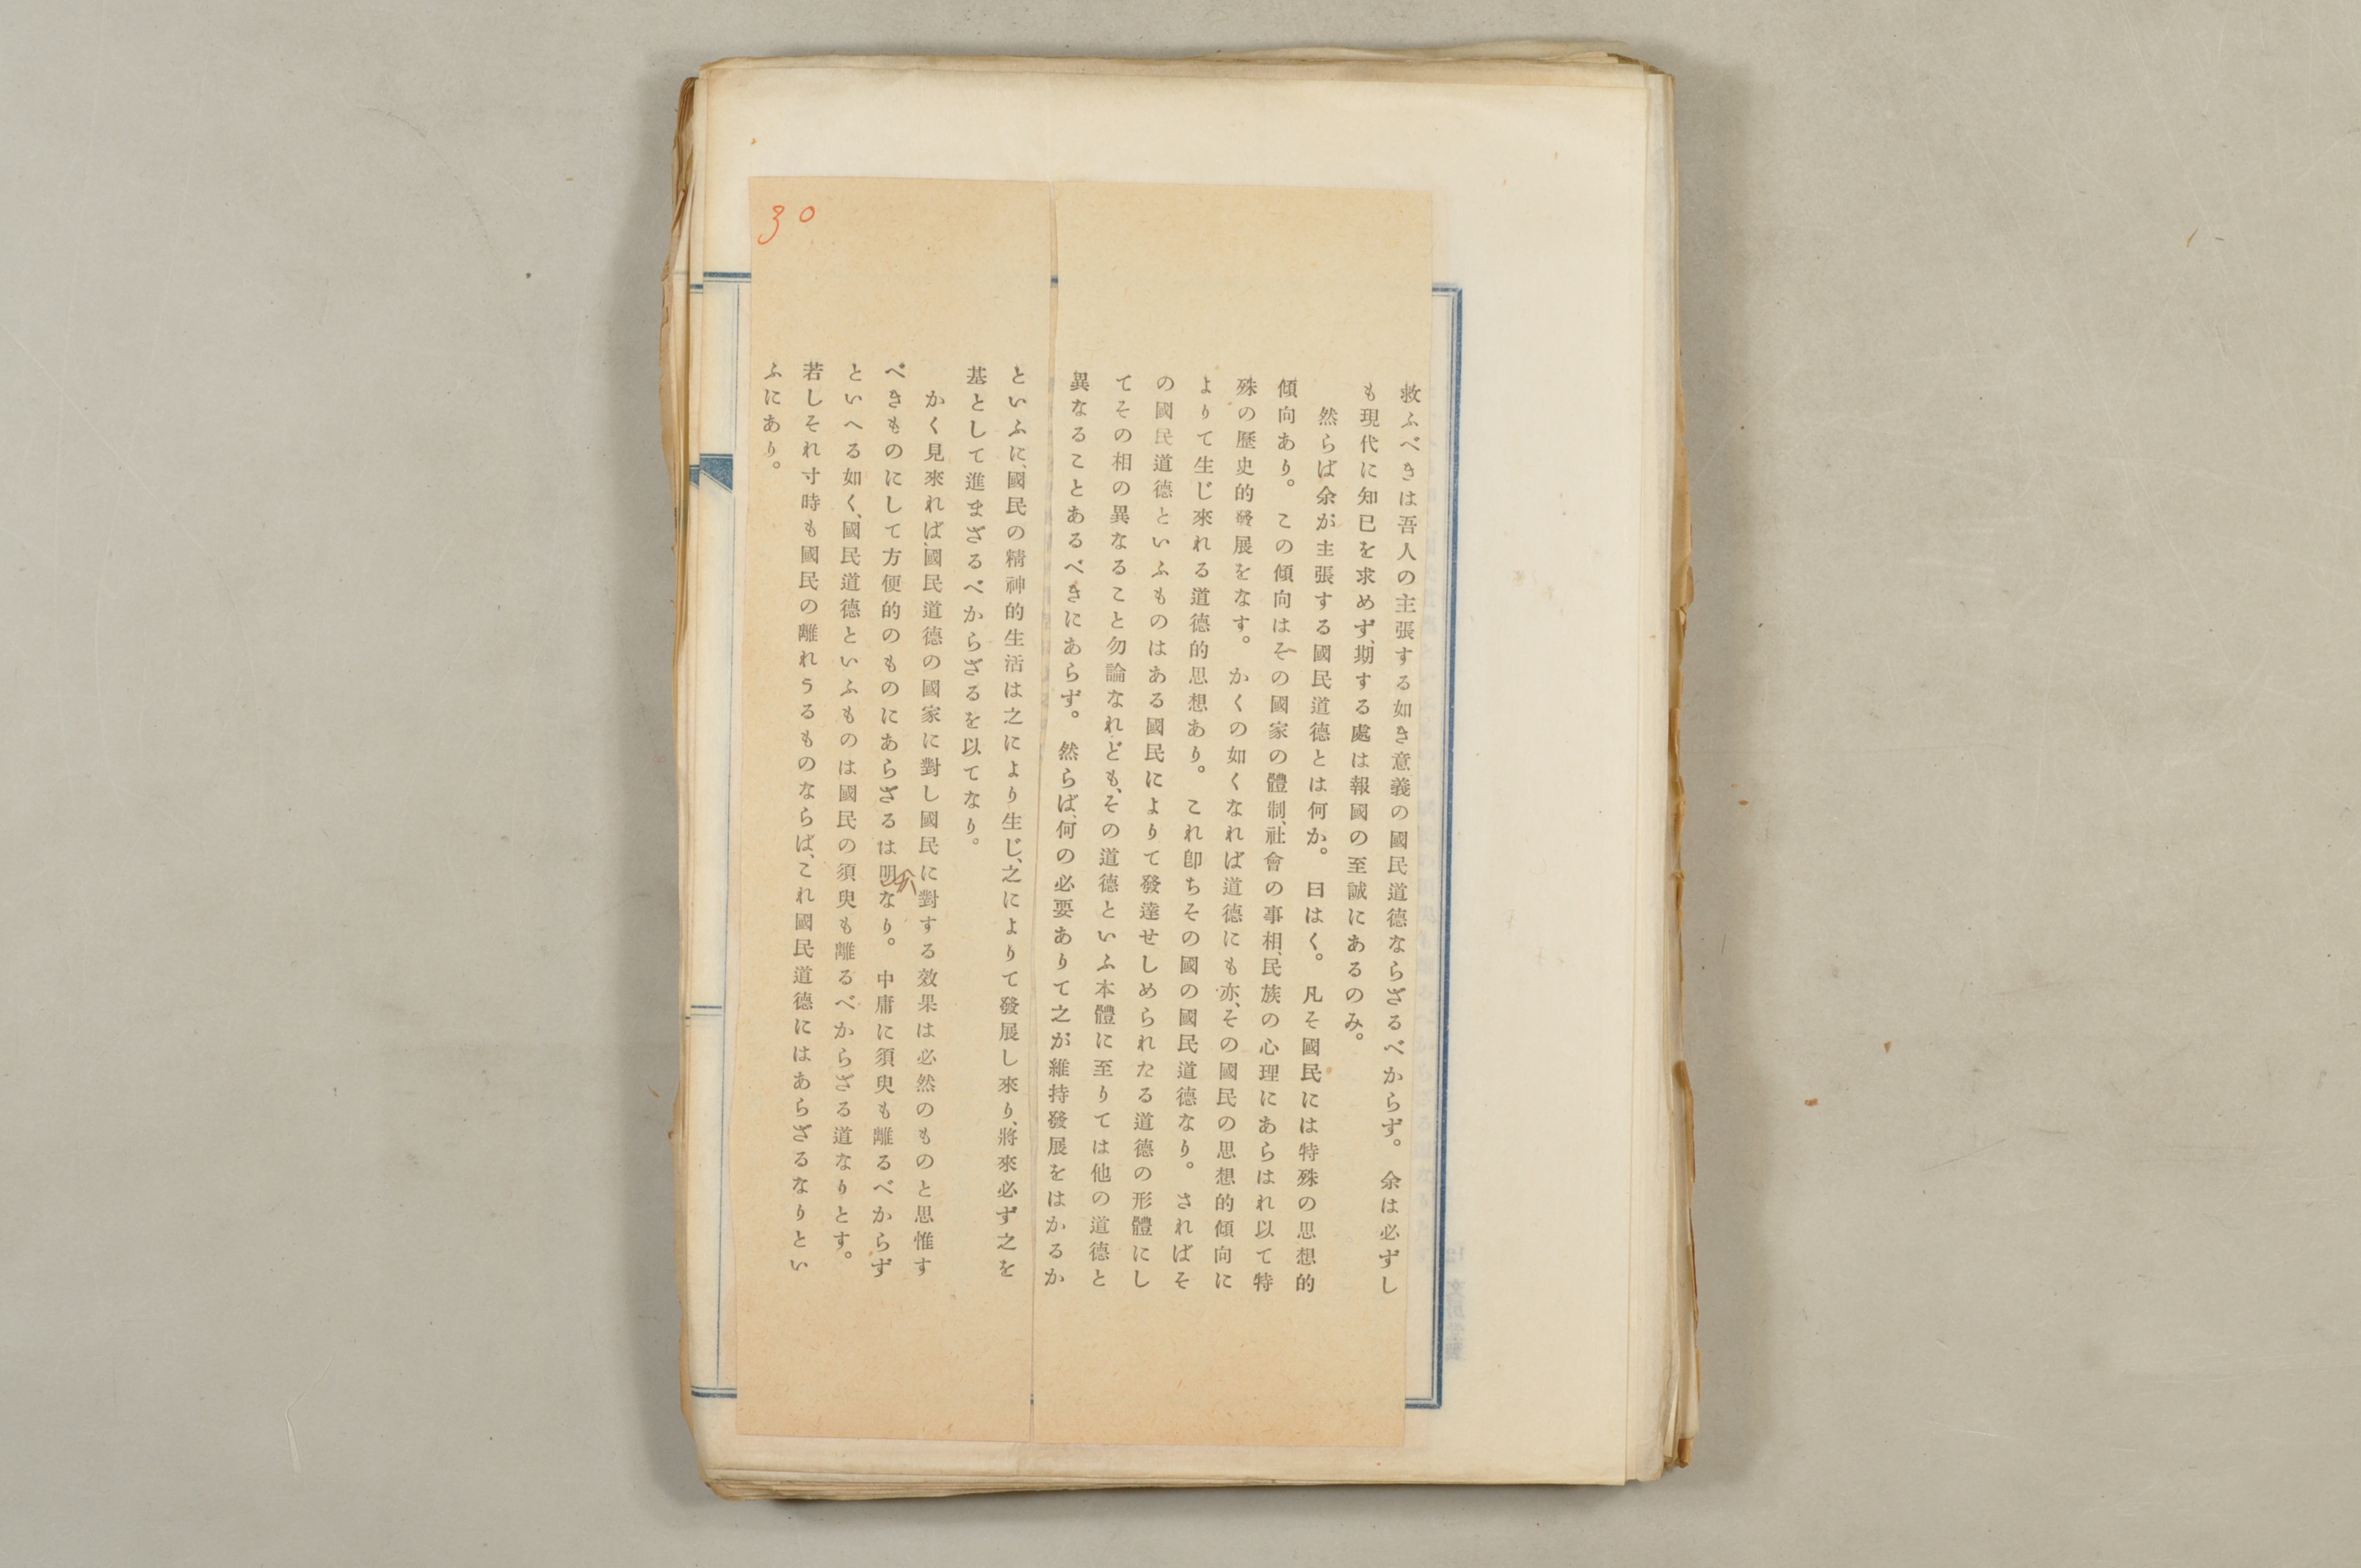 救ふべきは吾人の主張する如き意義の國民道德ならざるべからず。余は必ずし
も現代に知已を求めず、期する處は報國の至誠にあるのみ。
然らば余が主張する國民道德とは何か。曰はく。凡そ國民には特殊の思想的
傾向あり。この傾向はその國家の體制、社會の事相、民族の心理にあらはれ以て特
殊の歷史的發展をなす。かくの如くなれば道德にも亦、その國民の思想的傾向に
よりて生じ來れる道德的思想あり。これ卽ちその國の國民道德なり。さればそ
の國民道德といふものはある國民によりて發達せしめられたる道德の形體にし
てその相の異なること勿論なれども、その道德といふ本體に至りては他の道德と
異なることあるべきにあらず。然らば、何の必要ありて之が維持發展をはかるか
といふに、國民の精神的生活は之により生じ、之によりて發展し來り、將來必ず之を
基として進まざるべからざるを以てなり。
かく見來れば、國民道德の國家に對し國民に對する效果は必然のものと思惟す
べきものにして方便的のものにあらざるは明なり。中庸に須臾も離るべからず
といへる如く、國民道德といふものは國民の須臾も離るべからざる道なりとす。
若しそれ寸時も國民の離れうるものならば、これ國民道德にはあらざるなりとい
ふにあり。
30